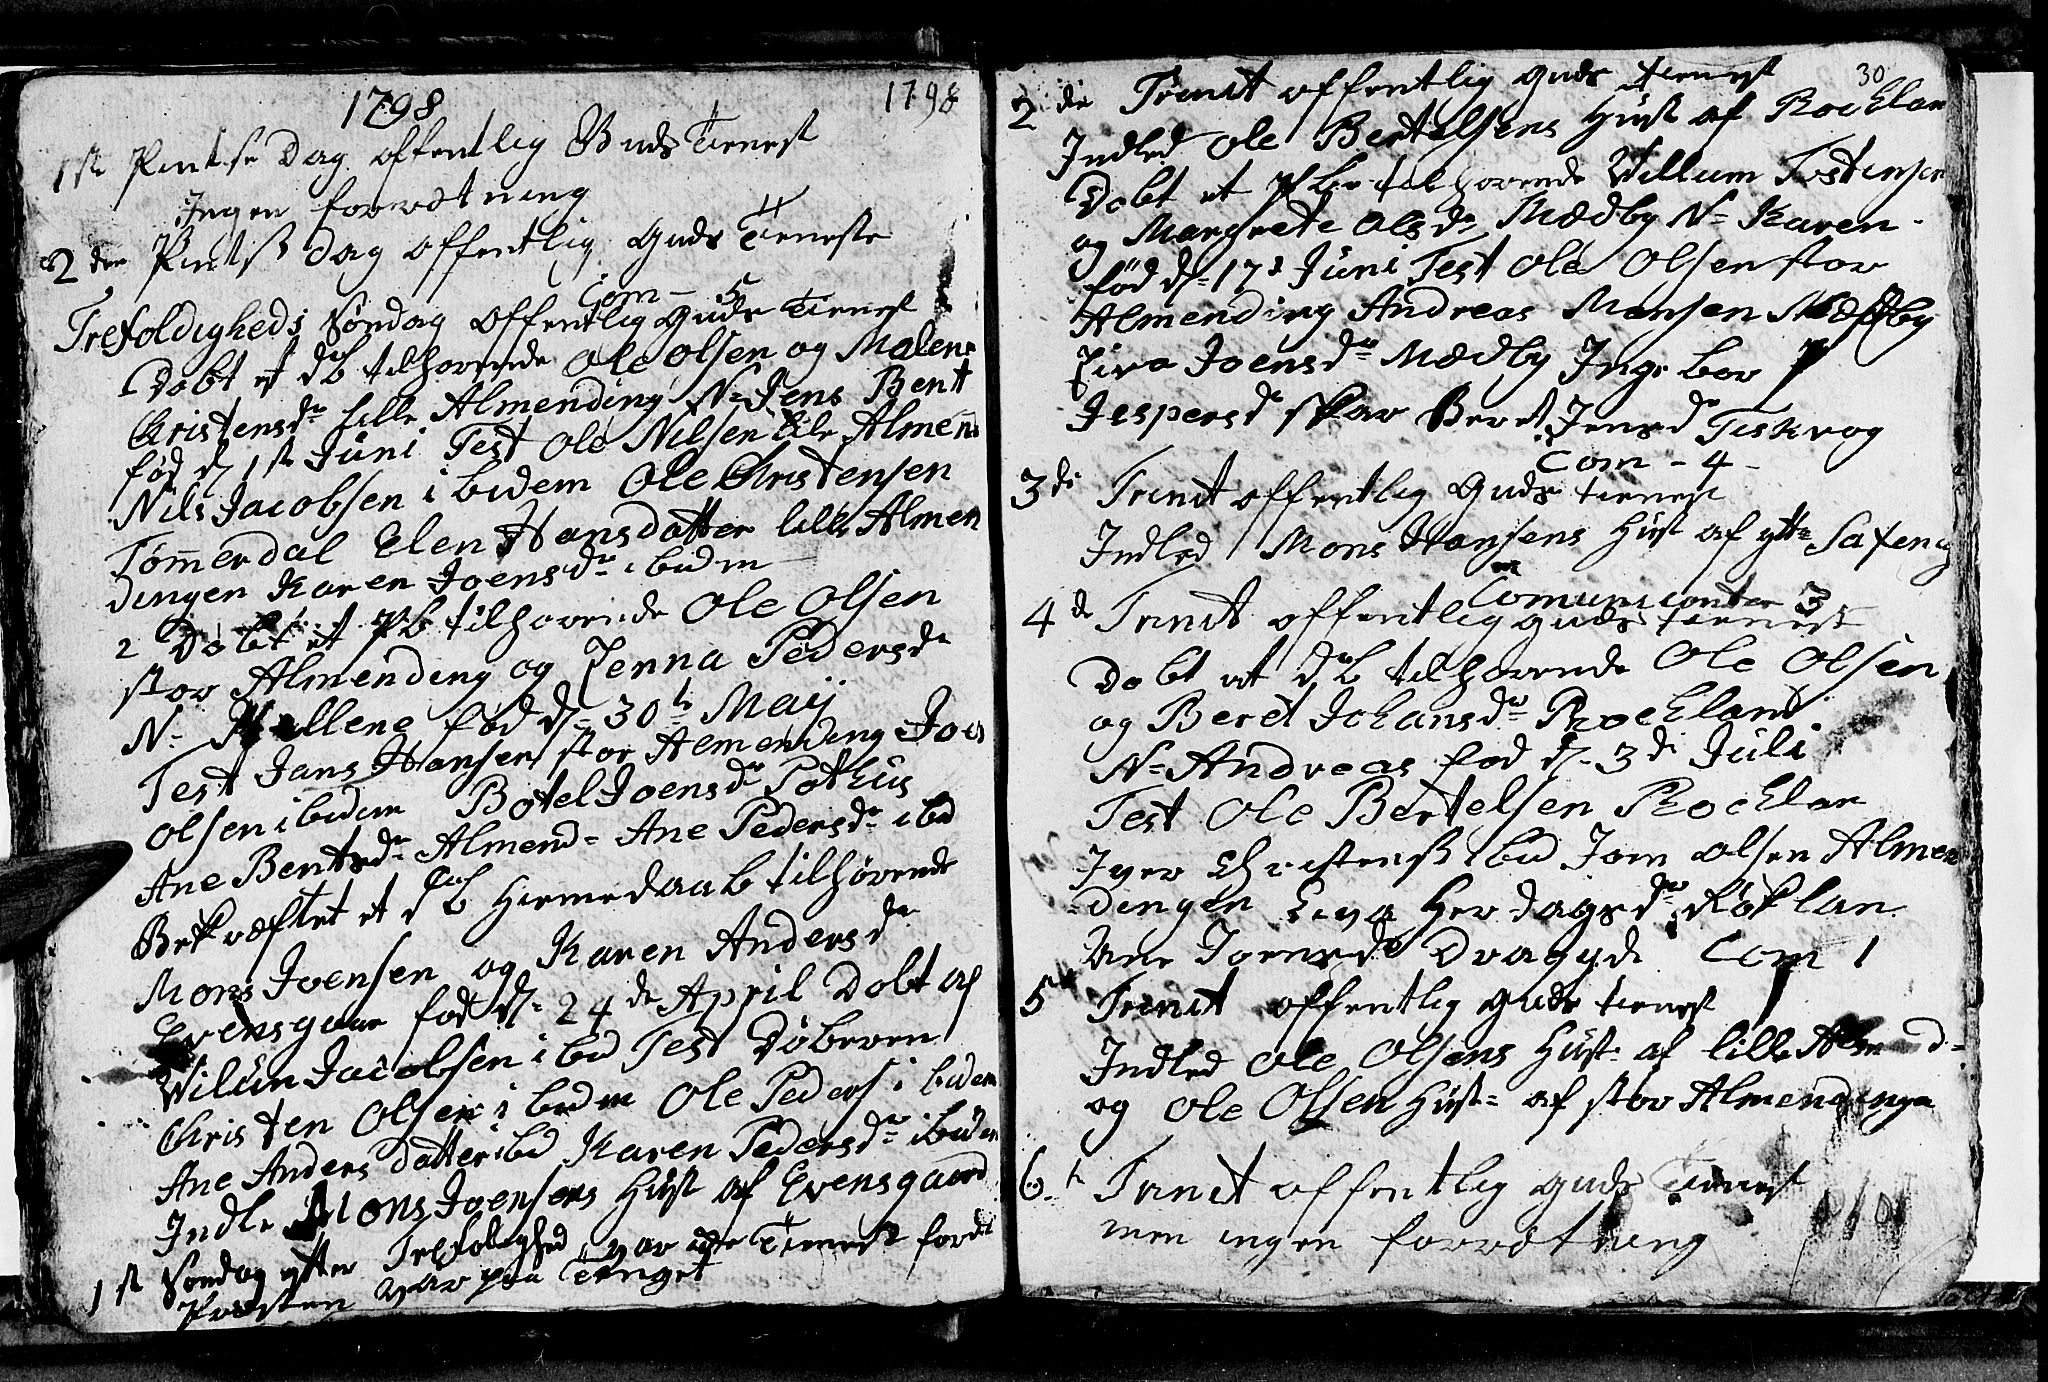 1798
1798
1st Pintse Dag offentlig GudsTienest
Ingen forrætning
2den Pintsß dag offentlig Guds Tieneste
Com - 5
Trefoldigheds Søndag offentlig Guds Tienest
Døbt et d b tilhørende Ole Olsen og Malene
Christensdr lille Almending N= Jens Bent
fød d 1st Juni Test Ole Nilsen lile Almen
Nils Jacobsen ibidem Ole Christensen
Tömerdal Elen Hansdatter lille Almen
dingen Karen Joensdr ibidm
2 Døbt et p b tilhørende Ole Olsen
stor Almending og Zenna Pedersdr
N= Pellene fød d= 30t Maij
Test Jans Hansen stor Almending Joen
Olsen ibidem Botel Joensdr Pothus
Ane Bentsdr Almend= Ane Pedersdr ibid
Bekræftet et d b Hiemedaab tilhørende
Mons Joensen og Karen Andersdr
Evensgaar fød d= 24de April Døbt af
Vilum Jacobsen ibid Test Døberen
Christen Olsen ibidem Ole Peders ibidem
Ane Anders datter ibid Karen Pedersdr ibidem
Indle Mons Joensens Hust af Evensgaard
1st Søndag efter Trefoldighed var icke Tienest fordi
Præsten var paa Tinget
30
2de Trinit offentlig Guds tienest
Indled Ole Bertelsens Hust af Rocklan
Døbt et p b tilhørende Villum Tostensen
og Margrete Olsdr Mædby N= Karen
fød d= 17de Juni Test Ole Olsen stor
Almending Andreas Monsen Mædby
Zira Joensdr Mædby Ingebor
Jespersdr skar Beret Jensdr Teskrog
Com - 4 -
3de Trinit offentlig Guds tienest
Indled Mons Hansens Hust af ytte Saxenvig
Comunicanter 3
4de Trinit offentlig Guds tienest
Døbt et d b tilhørende Ole Olsen
og Beret Johansdr Rockland
N= Andreas fød d= 3de Juli
Test Ole Bertelsen Rocklan
Iver Christensß ibid Jon Olsen Almen
dingen Siva Herdagsdr Røklan
Ane Joensdr Dragejde Com 1
5t Trinit offentlig Guds tienest
Indled Ole Olsens Hust= af lille Almend=
og Ole Olsen Hust= af stor Almendinga
6t Trinit offentlig Guds Tienest
men ingen forrætning